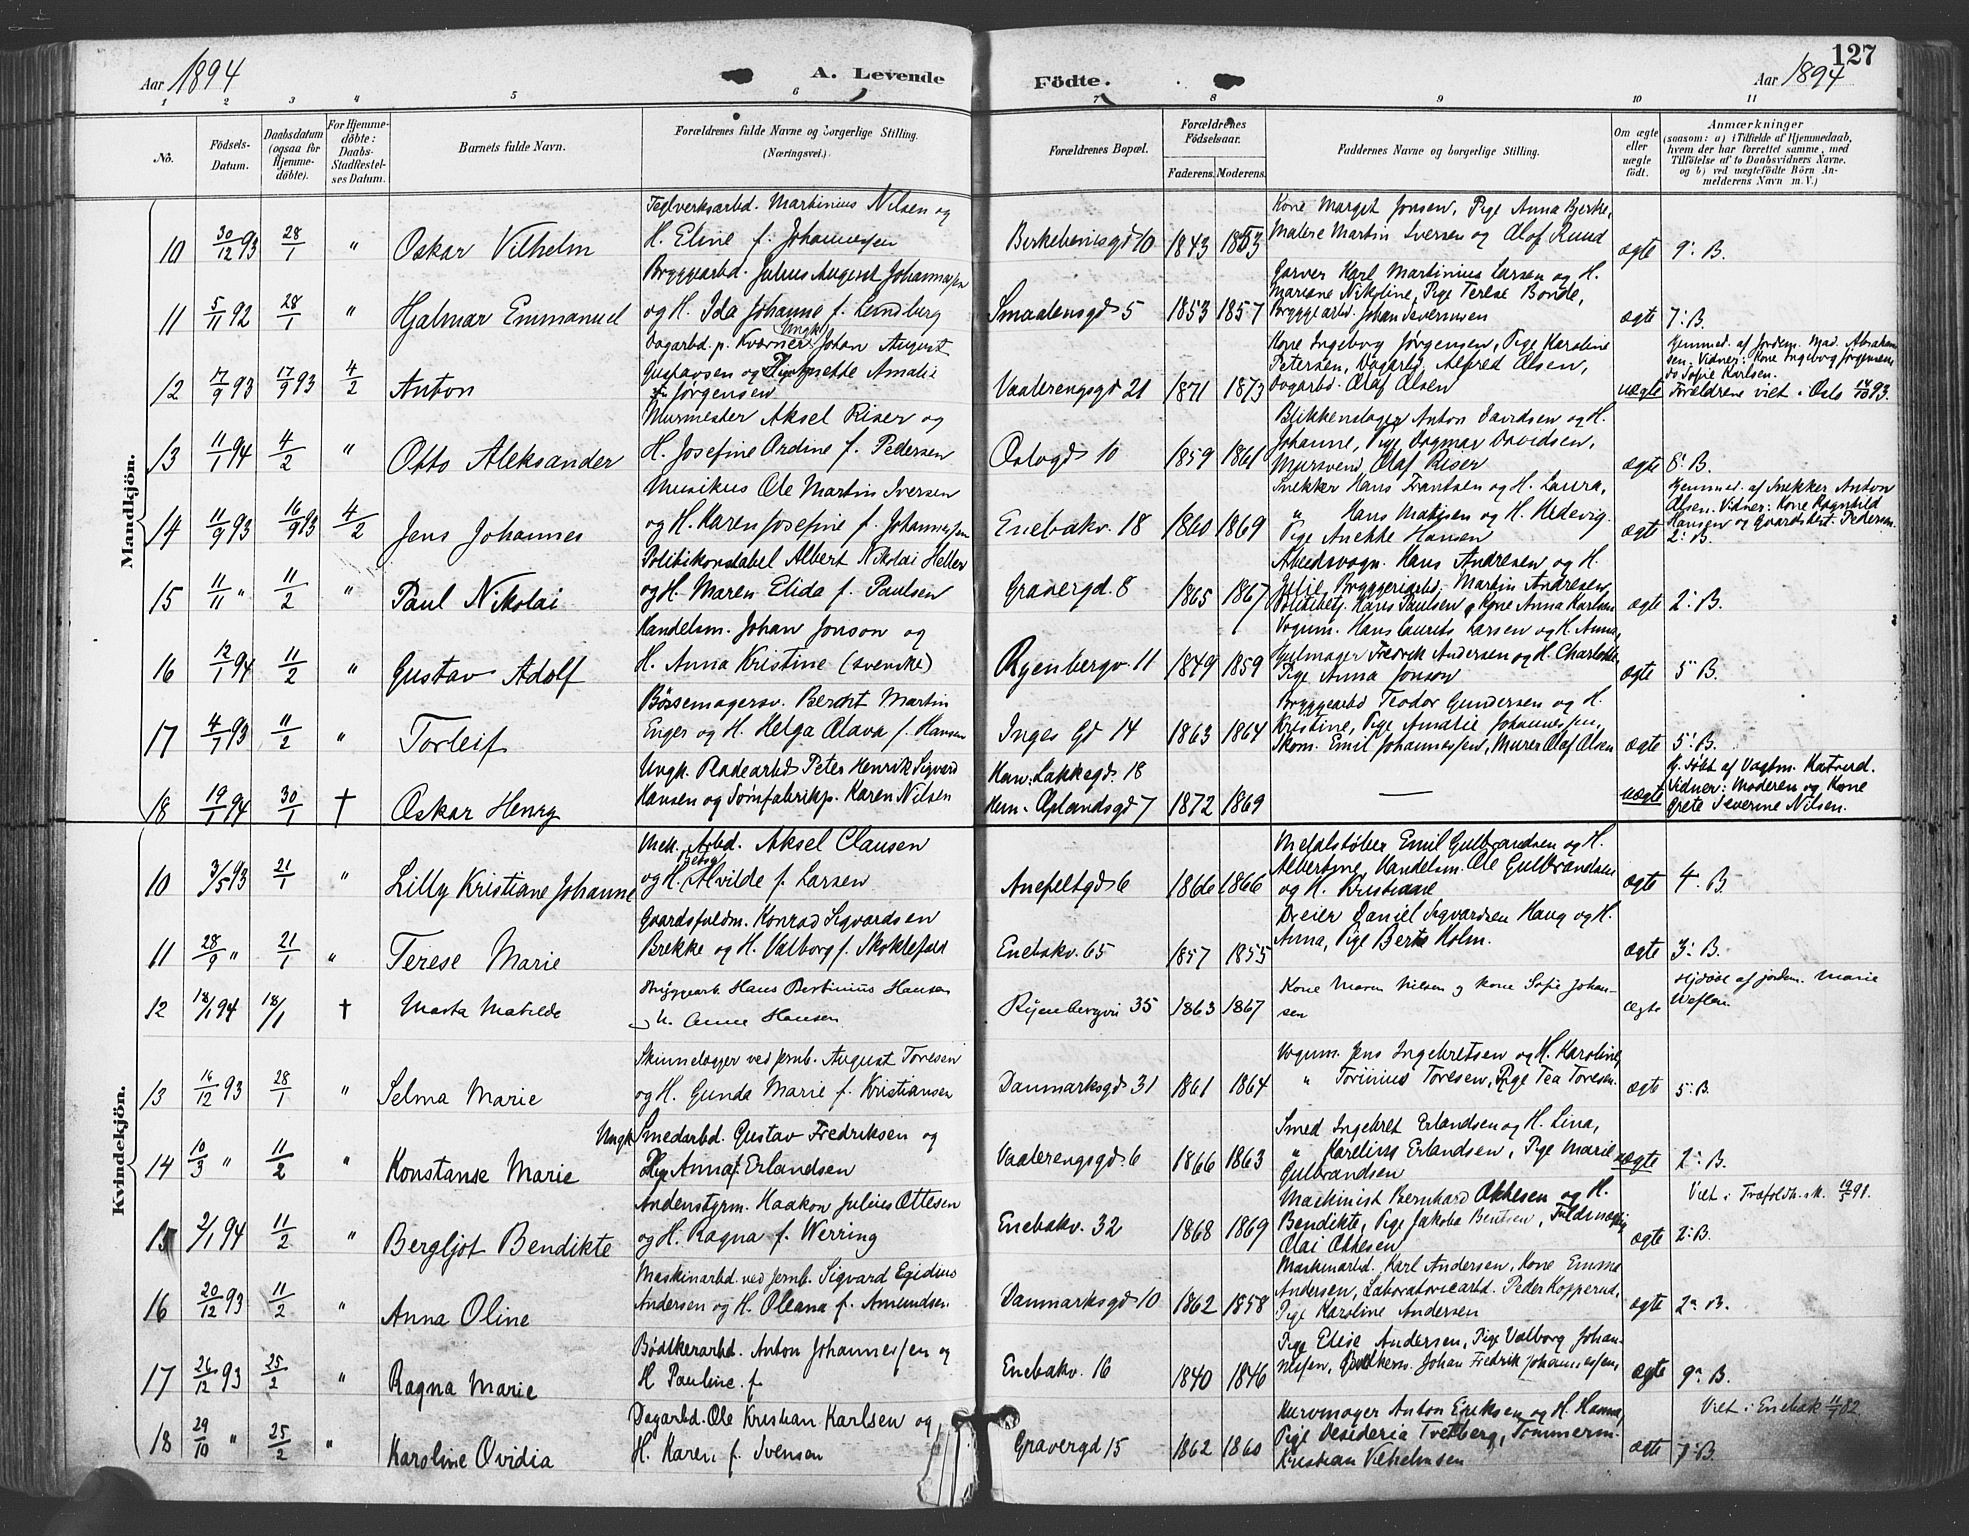 127
Aar 1894 A. Levende Födte. Aar 1894
1 2 3 4 5 6 7 8 9 10 11
No.
Födsels-Datum.
Daabsdatum (ogsaa for Hjemme-döbte).
For Hjemme-döbte: Daabs-Stadfæstel-ses Datum.
Barnets fulde Navn.
Forældrenes fulde Navne og borgerlige Stilling. (Næringsvei.)
Forældrenes Bopæl.
Forældrenes Födselsaar.
Faderens. Moderens.
Faddernes Navne og borgerlige Stilling.
Om ægte eller uægte födt.
Anmærkninger
(saasom: a) i Tilfælde af Hjemmedaab, hvem der har forrettet samme, med Tilföielse af to Daabsvidners Navne, og b) ved uægtefödte Börn An-melderens Navn m.V.)
Mandkjön.
10 30/12 93 28/1 " Oskar Vilhelm
Teglverksarbd. Martinius Nilsen og
H. Eline f. Johannessen
Birkebeinsgd 10 1843 1853
Kone Marget Jonsen, Pige Anna Bjerke,
Malere Martin Iversen og Olof Ruud
ægte 9: B.
11 5/11 92 28/1 " Hjalmar Emmanuel
Bryggearbd. Julius August Johannessen
og H. Ida Johanne f. Lindberg
Smaalensgd 5 1853 1857
Garver Karl Martinius Larsen og H.
Mariane Nikoline, Pige Terese Bonde,
Bryggearbd. Johan Severinsen
ægte 7: B.
12 17/9 93 17/9 93 4/2 Anton
Dagarbd. p. Kværner Ungk. Johan August
Gustavsen og Amalie
Jørgensen
Vaalerengsgd 21 1871 1873
Kone Ingebog Jørgensen, Pige Karoline
Petersen, Dagarbd. Alfred Olsen,
Dagarbd. Olaf Olsen
uægte
Hjemmed. af Jordem. Mad. Abraham
sen. Vidner: Kone Ingebog Jørgensen
Sofie Karlsen.
Forældrene viet i Oslo 14/10 93.
13 11/1 94 4/2 " Otto Aleksander
Murmester Aksel Riser og
H. Josefine Ordine f. Pedersen
Oslogd 10 1859 1861
Blikkenslager Anton Davidsen og H.
Johanne, Pige Dagmar Davidsen,
Mursvend Olaf Riser
ægte 6: B.
14 11/9 93 16/9 93 4/2 Jens Johannes
Musikus Ole Martin Iversen
og H. Karen Josefine f. Johannessen
Enebakv. 18 1860 1869
Snekker Hans Frantsen og H. Laura,
" Hans Madsen og H. Hedevig.
Pige Anekke Hansen
ægte
Hjemmed. af Snekker Anton
Olsen. Vidner: Kone Ragnhild
Hansen og Gaardsbest. Pedersen.
2: B.
15 11/11 " 11/2 " Paul Nikolai
Politikonstabel Albert Nikolai Heller
og H. Maren Elida f. Paulsen
Gravergd. 8 1865 1867
Arbeidsvogn. Hans Andresen og H.
Julie, Bryggeriarbd. Martin Andresen,
Politibetj. Hans Paulsen, Kone Anna Karlsen
ægte 2: B.
16 12/1 94 11/2 " Gustav Adolf
Handelsm. Johan Jonson og
H. Anna Kristine (svenske)
Ryenbergv. 11 1849 1859
Vognm. Hans Laurits Larsen og H. Anna,
Hjulmager Fredrik Andersen og H. Charlotte,
Pige Anna Jonson
ægte 5: B.
17 4/7 93 11/2 " Torleif
Børsemagersv. Berent Martin
Enger og H. Helga Olava f. Hansen
Inges Gd 14 1863 1864
Bryggearbd Teodor Gundersen og H.
Kristine, Pige Amalie Johannessen,
Skom. Emil Johannessen, Murer Olaf Olsen
ægte 5: B.
18 19/1 94 30/1 † Oskar Henry
Ungk. Pladearbd Peter Henrik Sigvard
Hansen og Sømfabrikp. Karen Nilsen
Han: Lakkegd. 18
Hun: Oplandsgd 7 1872 1869
—
uægte
Hj. døbt af Vagtm. Katrud.
Vidner: Moderen og Kone
Grete Severine Nilsen.
Kvindekjön.
10 3/5 93 21/1 " Lilly Kristiane Johanne
Mek. Arbd. Aksel Clausen
og H. Betsy Alvilde f. Larsen
Anefeltgd 6 1866 1866
Metalstøber Emil Gulbrandsen og H.
Albertine, Handelsm. Ole Gulbrandsen
og H. Kristiane
ægte 4. B.
11 28/9 " 21/1 " Terese Marie
Gaardsfuldm. Konrad Sigvardsen
Brekke og H. Valborg f. Skoklefald
Enebakv. 65 1857 1855
Dreier Daniel Sigvardsen Haug og H.
Anna, Pige Berte Holm.
ægte 3: B.
12 18/1 94 18/1 † Marta Matilde
Bryggearb. Hans Bertinius Hansen
H. Anne Hansen
Ryenbergvei 35 1863 1867
Kone Maren Nilsen og Kone Sofie Johan-
sen
ægte
Hjdøbt af jordem. Marie
13 16/12 93 28/1 " Selma Marie
Skinnelægger ved Jernb. August Toresen
og H. Gunda Marie f. Kristiansen
Danmarksgd 31 1861 1864
Vognm. Jens Ingebretsen og H. Karoline,
" Torinius Toresen, Pige Tea Toresen.
ægte 5: B.
14 10/3 " 11/2 " Konstanse Marie
Ungk Smedarbd. Gustav Fredriksen og
Anna Erlandsen
Vaalerengsgd 6 1866 1863
Smed Ingebret Erlandsen og H. Lina,
" Karelius Erlandsen, Pige Marie
Gulbrandsen
uægte 2: B.
15 2/1 94 11/2 " Bergljot Bendikte
Andenstyrm. Haakon Julius Ottesen
og H. Ragna f. Werring
Enebakv. 32 1868 1869
Maskinist Bernhard Ottesen og H.
Bendikte, Pige Jakoba Bentsen, Fuldmægtig
Olai Ottesen
ægte
Viet i Trefoldh. k. 19/5 91.
2: B.
16 20/12 93 11/2 " Anna Oline
Maskinarbd. ved Jernb. Sigvard Egidius
Andersen og H. Oleana f. Amundsen
Danmarksgd 10 1862 1858
Maskinarbd. Karl Andersen, Kone Emma
Andersen, Laboratoriearbd. Peder Kopperud,
Pige Karoline Andersen
ægte 2: B.
17 26/12 93 25/2 " Ragna Marie
Bødtkerarbd. Anton Johannessen og
H Pauline f
Enebakv. 16 1840 1846
Pige Elise Andersen, Pige Valborg Johan-
nessen, Johan Fredrik Johannessen,
ægte 9: B.
18 29/10 " 25/2 " Karoline Ovidia
Dagarbd. Ole Kristian Karlsen og
H. Karen f. Svensen
Gravergd 15 1862 1860
Kurvmager Anton Eriksen og H. Hanna,
Pige Desideria Tvetberg, Tømmerm.
Kristian Vilhelmsen
ægte
Viet i Enebak 11/7 82.
7: B.